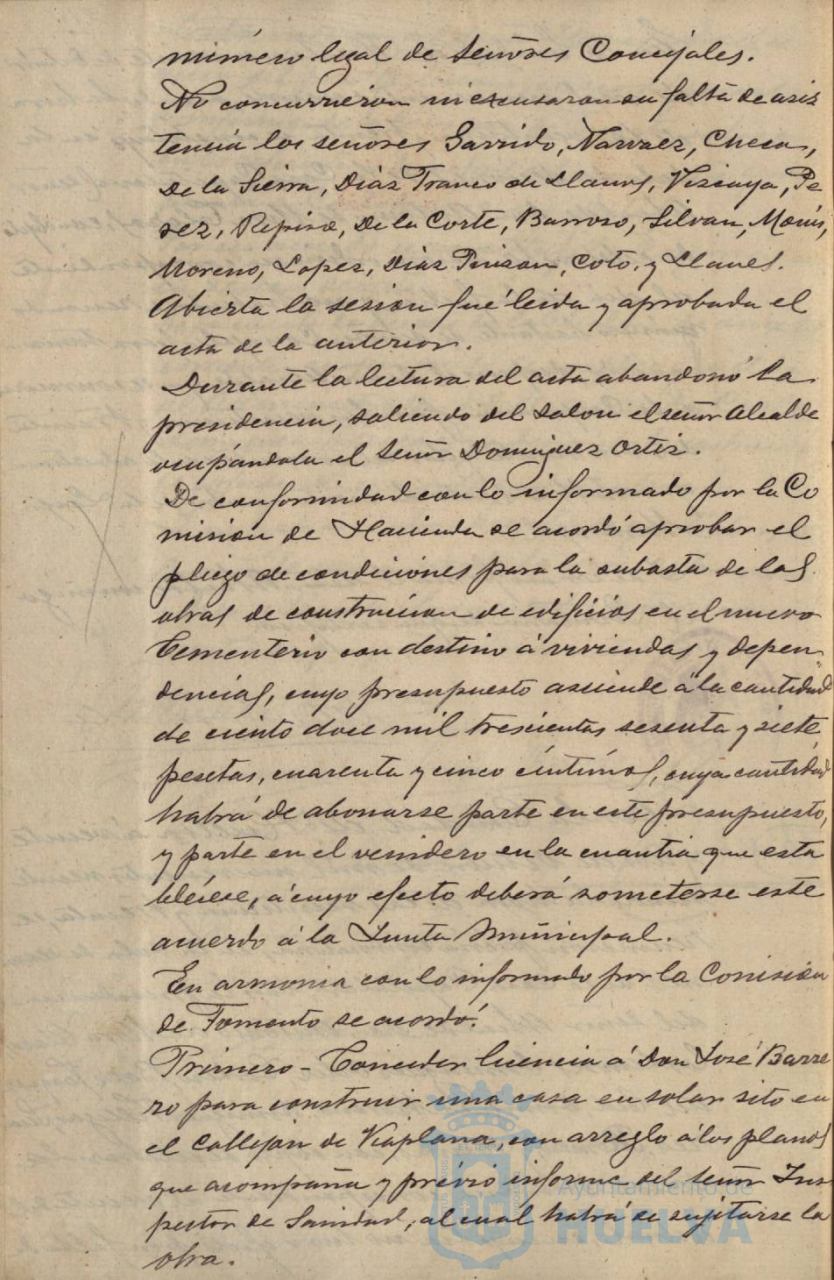 número legal de Señores Concejales.
No concurrieron ni excusaron su falta de asis
tencia los señores Garrido, Narvaez, Checa,
De la Sierra, Diaz Franco de Llanos, Vizcaya, Pe
rez, Repiso, De la Corte, Barroso, Silvan, Monis,
Moreno, Lopez, Diaz Pinzon, Coto, y Llanes.
Abierta la sesion fué leida y aprobada el
acta de la anterior.
Durante la lectura del acta abandonó la
presidencia, saliendo del salon el señor Alcalde
ocupándola el Señor Dominguez Ortiz.
De conformidad con lo informado por la Co
mision de Hacienda se acordó aprobar el
pliego de condiciones para la subasta de las
obras de construcion de edificios en el nuevo
Cementerio con destino á viviendas y depen-
dencias, cuyo presupuesto asciende á la cantidad
de ciento doce mil trescientas sesenta y siete
pesetas, cuarenta y cinco céntimos, cuya cantidad
habrá de abonarse parte en este presupuesto,
y parte en el venidero en la cuantia que esta
bléece, á cuyo efecto deberá someterse este
acuerdo á la Junta Municipal.
En armonia con lo informado por la Comision
de Fomento se acordó:
Primero - Conceder licencia á Don José Barre
ro para construir una casa en solar sito en
el Callejon de Viaplana, con arreglo á los planos
que acompaña y prévio informe del Señor Ins
pector de Sanidad, al cual habrá de sujetarse la
obra.
Ayuntamiento de
HUELVA